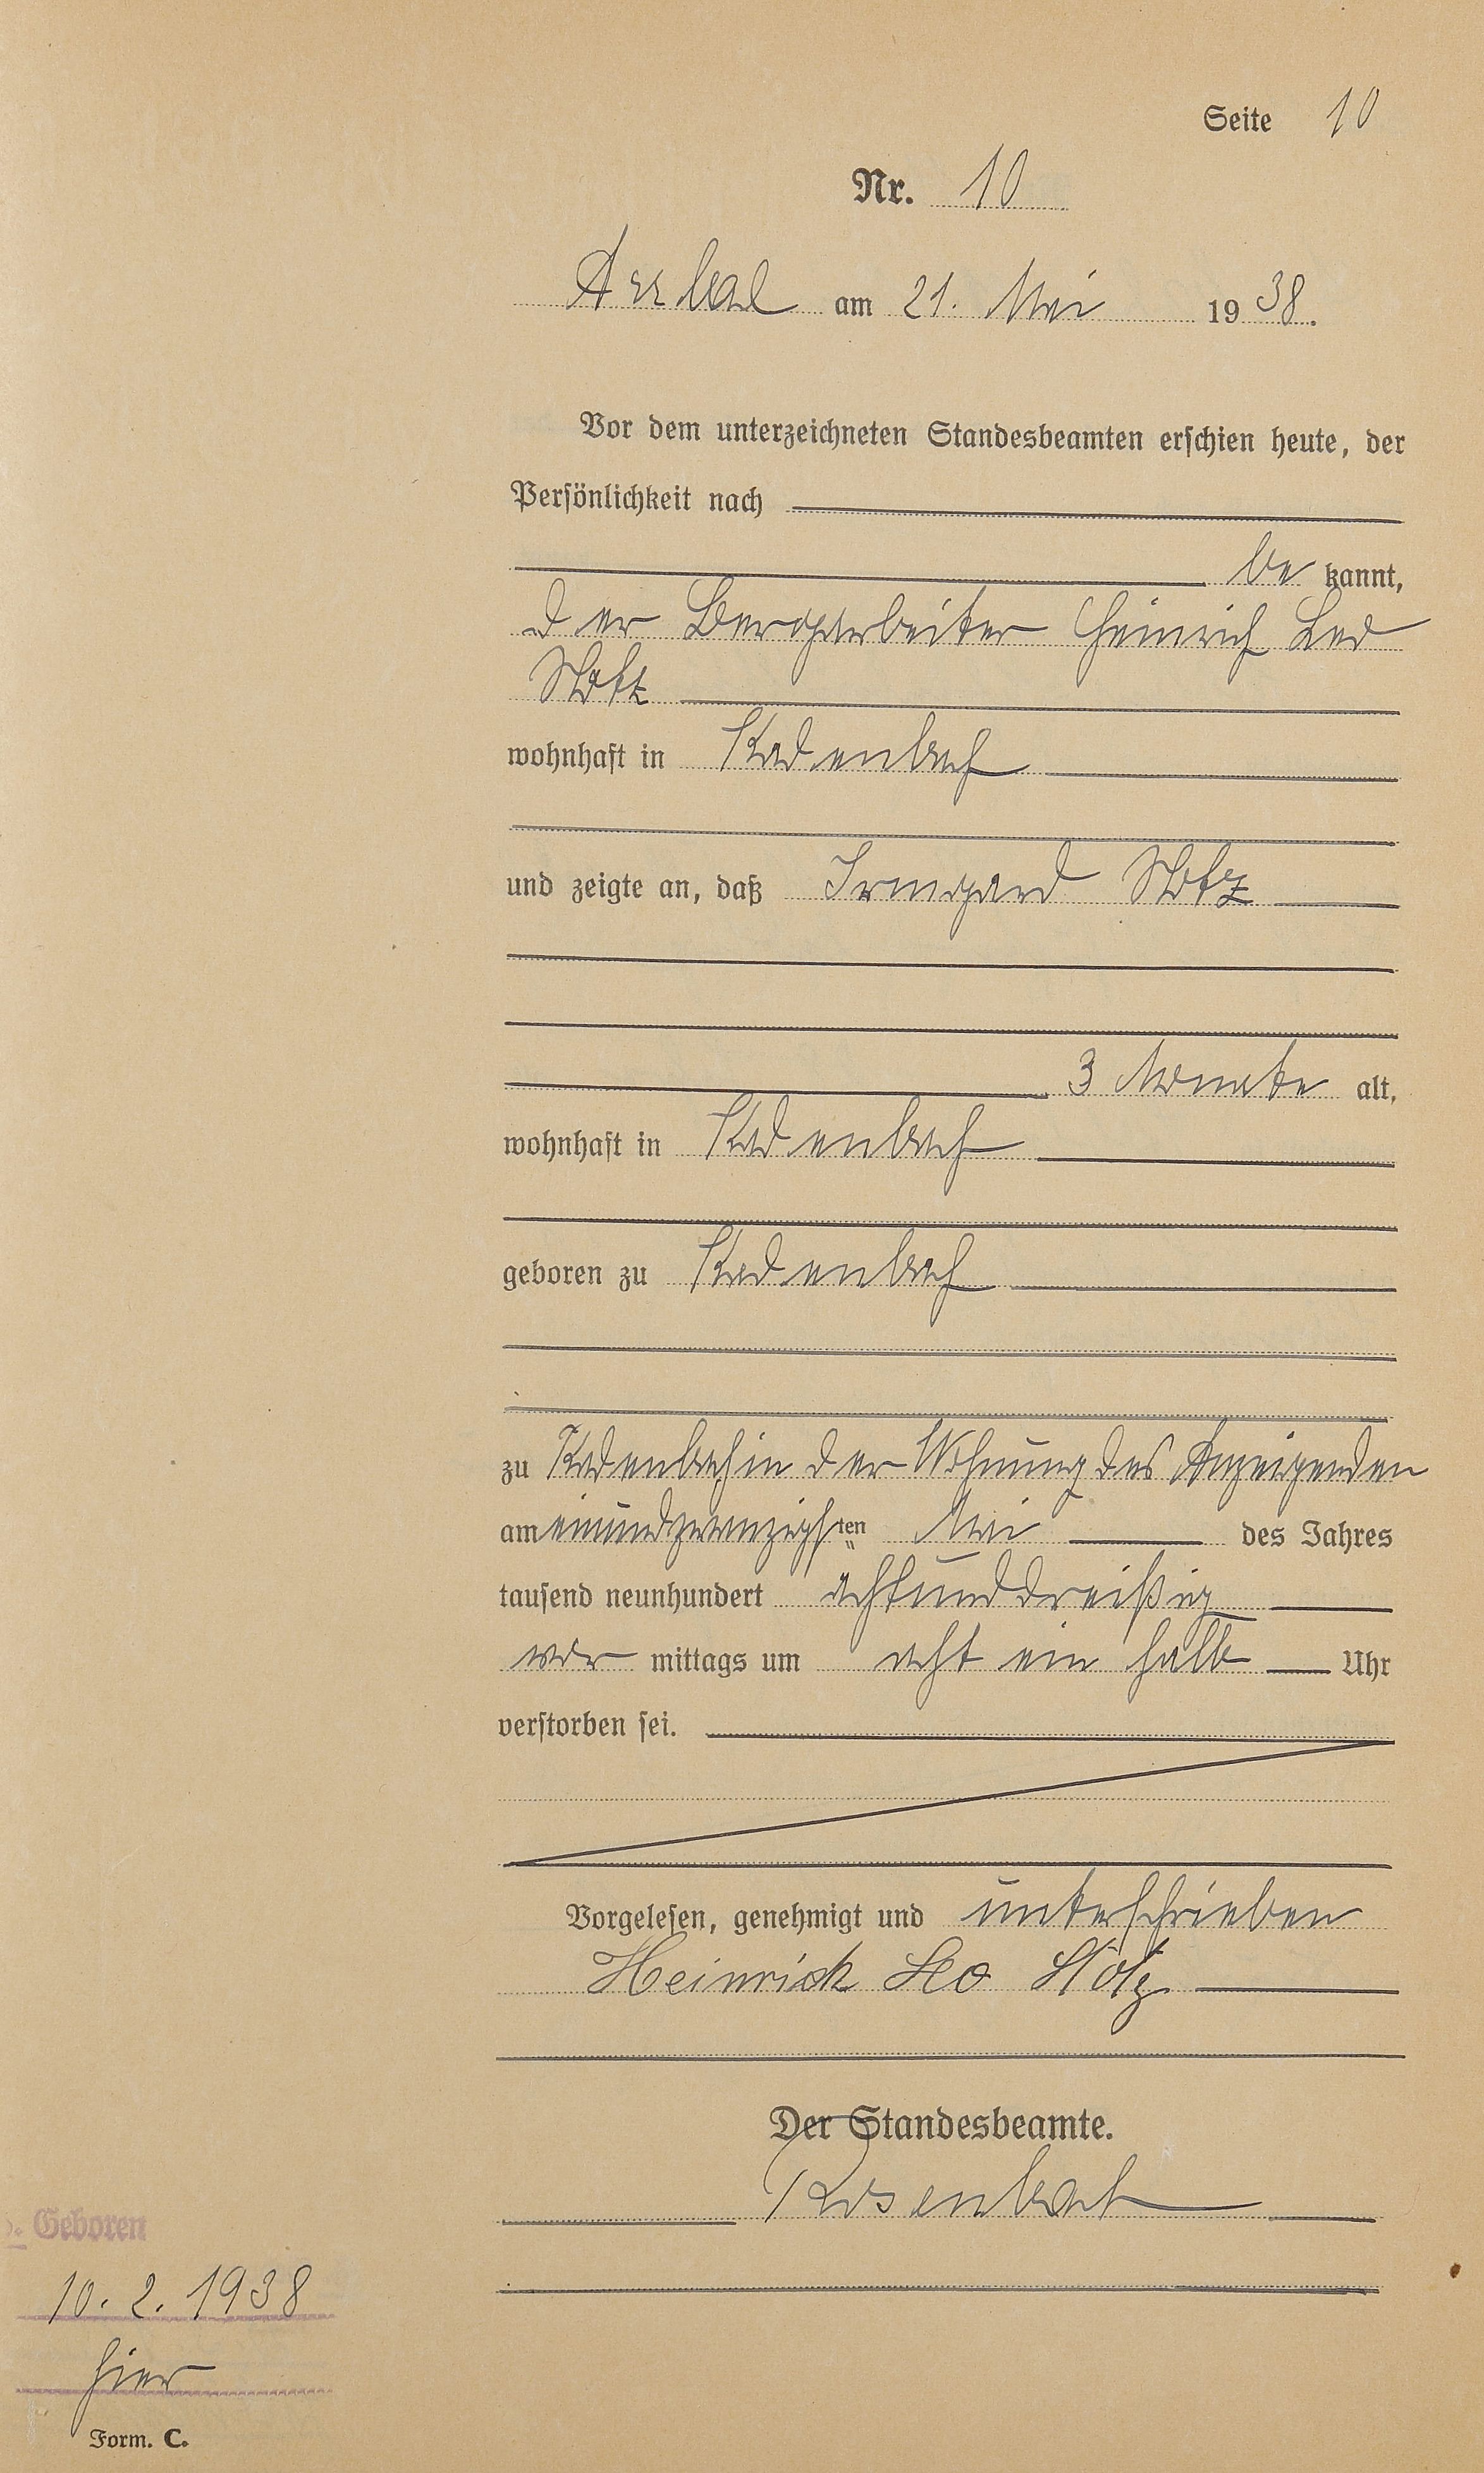 Seite 10
Nr. 10
Arzbach am 21. Mai 1938.
Vor dem unterzeichneten Standesbeamten erschien heute, der
Persönlichkeit nach
be kannt,
der Bergarbeiter Heinrich Leo
Stotz
wohnhaft in Kadenbach
und zeigte an, daß Irmgard Stotz
3 Monate alt,
wohnhaft in Kadenbach
geboren zu Kadenbach
zu Kadenbach in der Wohnung des Anzeigenden
am einundzwanzigsten Mai des Jahres
tausend neunhundert achtunddreißig
vor mittags um acht ein halb Uhr
verstorben sei.
Vorgelesen, genehmigt und unterschrieben
Heinrich Leo Stotz
Der Standesbeamte.
Geboren
10. 2. 1938
hier
Form. C.